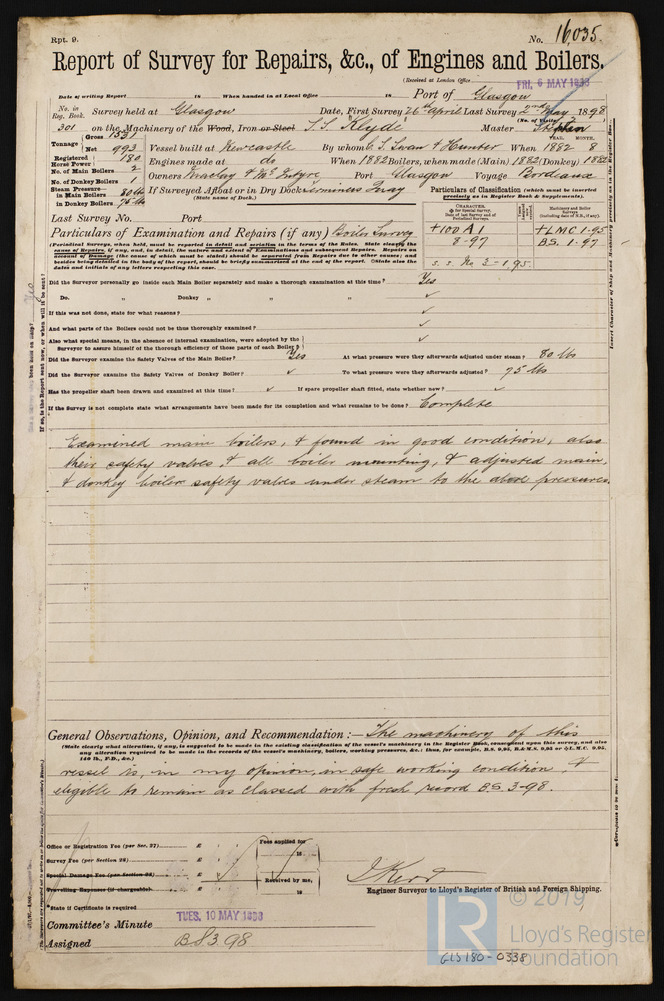 Rpt. 9.
No. 16,035.
Report of Survey for Repairs, &c., of Engines and Boilers.
(Received at London Office
FRI. 6 MAY 1898
Date of writing Report is When handed in at Local Office is Port of Glasgow
No. in Reg. Book. Survey held at Glasgow Date, First Survey 26th April Last Survey 2nd May 1898
(No. of Visits 2)
301 on the Machinery of the Wood, Iron or Steel S.S. Klyde Master
Tonnage Gross 1531
Net 993
Vessel built at Newcastle By whom C. S. Swan & Hunter When 1882 8
YEAR. MONTH.
Registered Horse Power 180
Engines made at do When 1882 Boilers, when made (Main) 1882 (Donkey) 1882
No. of Main Boilers 2
Owners Maclay & McIntyre Port Glasgow Voyage Bordeaux
No. of Donkey Boilers 1
Steam Pressure in Main Boilers 80 lbs
in Donkey Boilers 75 lbs
If Surveyed Afloat or in Dry Dock Terminus Quay
(State name of Dock.)
Particulars of Classification (which must be inserted precisely as in Register Book & Supplements).
Last Survey No. Port
CHARACTER.
* for Special Survey.
Date of last Survey and of Periodical Surveys.
Machinery and Boiler Surveys
(including date of N.B., if any).
+100 A1
8-97
+LMC 1-95
BS. 1-97
s. s. No 3-1-95
Particulars of Examination and Repairs (if any) Boiler Survey
(Periodical Surveys, when held, must be reported in detail and seriatim in the terms of the Rules. State clearly the
cause of Repairs, if any, and, in detail, the nature and extent of Examinations and subsequent Repairs. Repairs on
account of Damage (the cause of which must be stated) should be separated from Repairs due to other causes; and
besides being detailed in the body of the report, should be briefly summarized at the end of the report. State also the
dates and initials of any letters respecting this case.
Did the Surveyor personally go inside each Main Boiler separately and make a thorough examination at this time? Yes
Do. " Donkey " " " ✓
If this was not done, state for what reasons? ✓
And what parts of the Boilers could not be thus thoroughly examined? ✓
Also what special means, in the absence of internal examination, were adopted by the
Surveyor to assure himself of the thorough efficiency of those parts of each Boiler? ✓
Did the Surveyor examine the Safety Valves of the Main Boiler? Yes At what pressure were they afterwards adjusted under steam? 80 lbs
Did the Surveyor examine the Safety Valves of Donkey Boiler? ✓ To what pressure were they afterwards adjusted? 75 lbs
Has the propeller shaft been drawn and examined at this time? ✓ If spare propeller shaft fitted, state whether new? ✓
If the Survey is not complete state what arrangements have been made for its completion and what remains to be done? Complete
Examined main boilers, & found in good condition, also
their safety valves, & all boiler mounting, & adjusted main,
& donkey boiler safety valves under steam to the above pressures.
General Observations, Opinion, and Recommendation:— The machinery of this
(State clearly what alteration, if any, is suggested to be made in the existing classification of the vessel's machinery in the Register Book, consequent upon this survey, and also
any alteration required to be made in the records of the vessel's machinery, boilers, working pressures, &c.: thus, for example, B.S. 9,95, B.&M.S. 9,95 or +L.M.C. 9,95,
140 lb., F.D., &c.)
vessel is, in my opinion, in safe working condition, &
eligible to remain as classed with fresh record BS 3-98.
Office or Registration Fee (per Sec. 27) £
Fees applied for
Survey Fee (per Section 28) £
Special Damage Fee (per Section 28) £
Received by me,
Travelling Expenses (if chargeable) £
Engineer Surveyor to Lloyd's Register of British and Foreign Shipping.
*State if Certificate is required
Committee's Minute TUES. 10 MAY 1898
Assigned BS 3.98
© 2019
LR
Lloyd's Register
Foundation
GLS180-0338